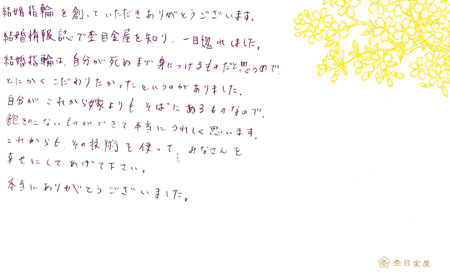 結婚指輪を創っていただきありがとうございます。
結婚情報誌で杢目金屋を知り、一目惚れしました。
結婚指輪は、自分が死ぬまで身につけるものだと思うので、
とにかくこだわりたかったというのがありました。
自分がこれから嫁よりもそばにあるものなので、
飽きのこないものができて本当にうれしく思います。
これからも、その技術を使って、みなさんを
幸せにしてあげて下さい。
本当にありがとうございました。
杢目金屋